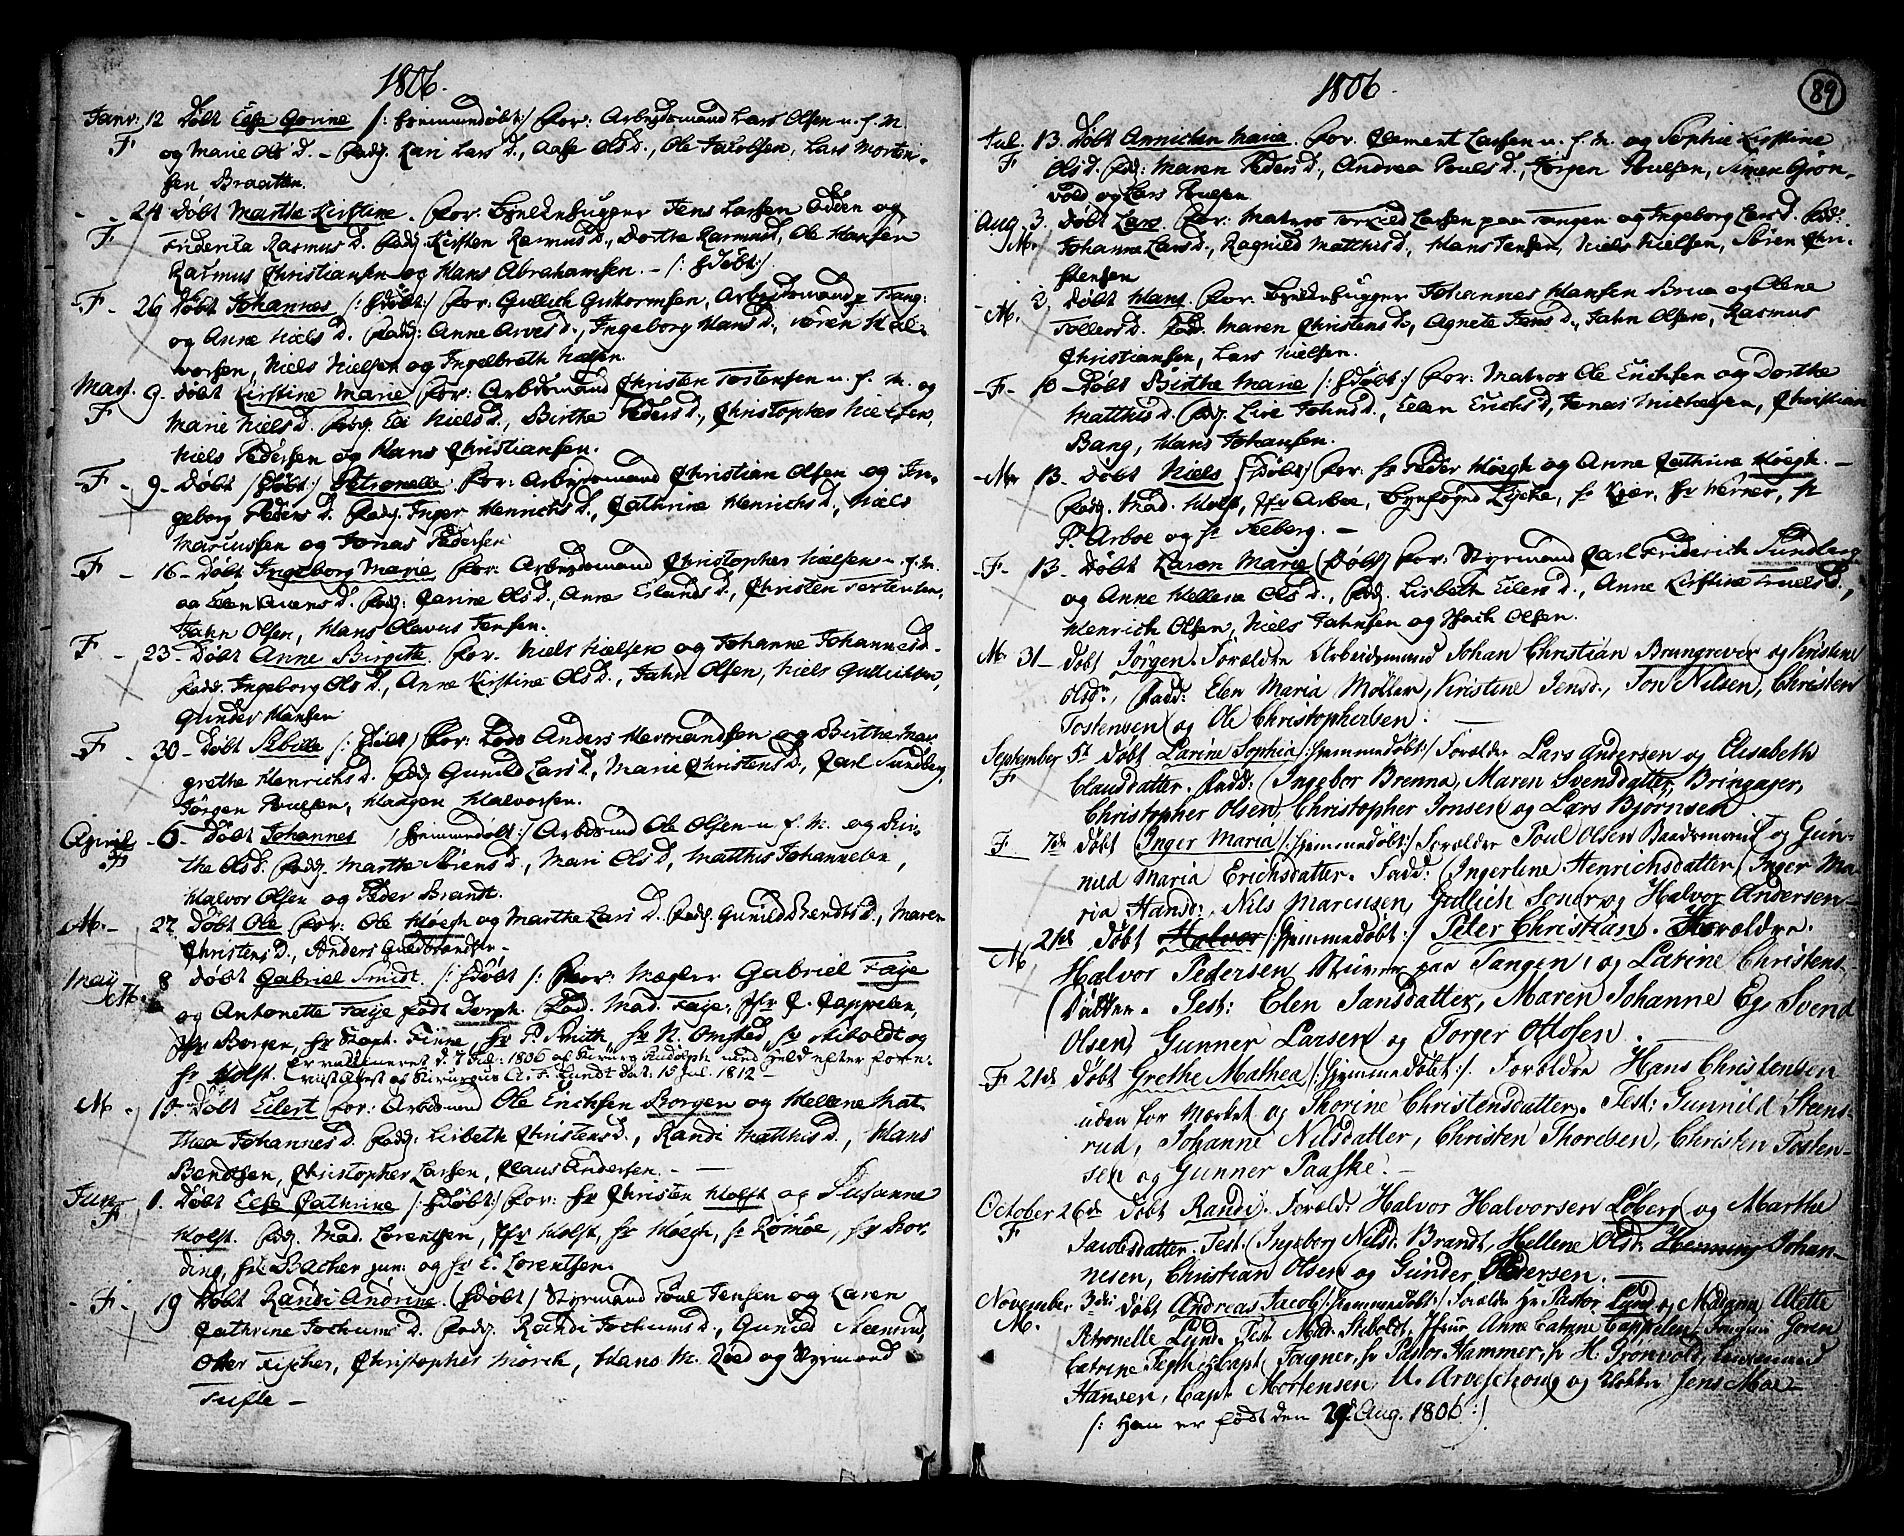 1806.
Janr: 12 Døbt Else Gorine /: hiemmedøbt :/ For: Arbejdsmand Lars Olsen u. f. M.
F og Marie Ols D. – Fadj. Kari Lars D., Aase Ols D., Ole Jacobsen, Lars Morten-
sen Braatten.
- - 24 Døbt Marthe Kirstine. For: Bjelkehugger Jens Larsen Odden og
F Friderica Rasmus D. Fadj Kirsten Rasmus D., Dorthe Rasmus D., Ole Hansen
Rasmus Christiansen og Hans Abrahamsen. – /: Hdøbt :/
- F - 26 Døbt Johannes /: Hdøbt :/ For: Gullich Gukormsen, Arbejdsmand p Tang:
og Anne Niels D. Fadj: Anne Arves D., Ingeborg Hans D., Søren Hal-
vorsen, Niels Nielsen og Ingelbreth Nielsen.
Mart. 9. Døbt Kirstine Marie For: Arbdsmand Christen Tostensen u. f. M. og
F Marie Niels D. Fadj. Eli Niels D., Birthe Peders D., Christopher Nielsen,
Niels Pedersen og Hans Christiansen.
- F - 9 - Døbt /: Hdøbt :/ Petronelle For: Arbejdsmand Christian Olsen og In-
geborg Peders D. Fadj. Inger Henrichs D., Cathrine Henrichs D., Niels
Marcussen og Jonas Pedersen
- F - 16 - Døbt Ingeborg Marie For: Arbejdsmand Christopher Nielsen u. f. M.
og Elen Svens D. Fadj: Carine Ols D., Anne Erlands D., Christen Tostensen,
Jahn Olsen, Hans Olavus Jensen.
F - 23 - Døbt Anne Birgithe. For. Niels Nielsen og Johanne Johannesd.
Fadd. Ingeborg Ols D., Anne Kirstine Ols D., Jahn Olsen, Niels Gullichsen,
Gunder Hansen
- F - 30 - Døbt Sibille /: Hdøbt :/ For: Lods Anders Hermandsen og Birthe Mar-
grethe Henrichs D. Fadj Gunild Lars D., Marie Christens D., Carl Sundberg,
Jörgen Poulsen, Haagen Halvorsen.
April - 6 - Døbt Johannes /: hiemmedøbt :/ Arbdsmd Ole Olsen u. f. M. og Bir-
the Ols D. Fadj. Marthe Sørens D., Mari Ols D., Matthis Johannesen,
Halvor Olsen og Peder Brandt.
M. - 27 Døbt Ole For: Ole Høegh og Marthe Lars D. Fadj. Gunild Bendts D., Maren
Christens D., Anders Guldbrandsen –
May M. 8 Døbt Gabriel Smidt /: Hdøbt :/ For: Mægler Gabriel Faje
og Antonette Faije født Dorph. Fad. Mad. Faije, Jfr C. Cappelen,
Jfr Borgen, Hr Steph. Finne, Hr P. Smith, Hr N. Omsted, Hr Stiboldt og
Hr Holst. Er vaccineret d. 7 Jul: 1806 af Kirurg Rudolph med Held efter foren:
Attest af Kirurgus A. F. Lundt Dat. 15 Jul. 1812 –
M. - 18 - Døbt Eilert For: Arbdsmand Ole Erichsen Borgen og Hellene Mat-
thea Johannes D. Fadj: Lisbeth Christens D., Randi Matthis D., Hans
Bendtsen, Christopher Larsen, Claus Andersen. –
Jun. F 1. Døbt Else Cathrine /: Hdøbt :/ For: Hr Christen Holst og Susanne
Holst. Fadj. Mad. Lorentsen, Jfr Holst, Hr Høegh, Hr Lömöe, Hr Bor-
ding, Hr Bacher jun. og Hr E. Lorentsen.
- F - 19 Døbt Randi Andrine. (Hdøbt) Styrmand Poul Jensen og Karen
Cathrine Jochums D. Fadj. Randi Jochums D., Gunild Steensrud,
Otter Fischer, Christopher Mörch, Hans M. Röed og Styrmand
Tufte –
1806. 89
Jul. 13. Døbt Annichen Marie. For. Clement Larsen u. f. M. og Sophie Kirstine
F Ols D. Fadj: Maren Peders D., Andrea Pouls D., Jörgen Poulsen, Simen Grön-
vold og Lars Poulsen
Aug. 3. Døbt Lars For: Matros Torkild Larsen paa Tangen og Ingeborg Lars D. Fad:
M. Johanne Lars D., Ragnild Matthis D., Hans Jensen, Niels Nielsen, Søren Chri-
stensen
- M. 3, Døbt Hans. For: Bjelkehugger Johannes Hansen Brua og Olene
Tollevs D. Fadr. Maren Christens D., Agnete Jens D., Jahn Olsen, Rasmus
Christiansen, Lars Nielsen.
- F - 10 - Døbt Birthe Marie /: Hdøbt :/ For: Matros Ole Erichsen og Dorthe
Matthis D. Fadj. Live Johns D., Eilen Erichs D, Jonas Michelsen, Christian
Bang, Hans Johansen.
- M. 13. Døbt Niels /: Hdøbt :/ For: Hr Peder Høegh og Anne Cathrine Høegh. –
Fadj. Mad. Holst, Jfr Arboe, Bynfogd Lycke, Hr Kjer, Hr Werner, Hr
P. Arboe og Hr Seeberg. –
- F - 13 - Døbt Karen Marie (Døbt) For: Styrmand Carl Friderich Sundberg
og Anne Hellene Ols D., Fadj. Lisbeth Eilers D., Anne Kirstine Truels D.,
Henrich Olsen, Niels Jahnsen og Isach Olsen.
M. 31 - døbt Jørgen. Forældre Arbeidsmand Johan Christian Brungrever og Kirstine
Olsdr, Fadd: Elen Maria Møller, Kirstine Jensd., Jon Nilsen, Christen
Tostensen og Ole Christophersen.
September 5t døbt Larine Sophia /: Hjemmedøbt :/ Forældre Lars Andersen og Elisabeth
F Clausdatter. Fadd: Ingebor Brenna, Maren Svensdatter, Bringager,
Christopher Olsen, Christopher Jonsen og Lars Bjørnsen
F. 7de døbt Inger Maria /: Hjemmedøbt :/ Forældre Poul Olsen Baadsmand og Gun-
nild Maria Erichsdatter. Fadd: Ingerlene Henrichsdatter, Inger Ma-
ria Hansd:, Nils Marcusen, Gullich Sondr og Halvor Andersen –
M 21de døbt Halvor /: Hjemmedøbt :/ Peter Christian. Forældre.
Halvor Pedersen Stuerm paa Tangen, og Larine Christens-
Datter. Test: Elen Jansdatter, Maren Johanne Eg, Svend
Olsen, Gunner Larsen og Torger Ottosen.
F 21de døbt Grethe Mathea /: Hjemmedøbt :/. Forældre Hans Christensen
uden for Mærket og Thorine Christensdatter. Test: Gunnild Steens-
rud, Johanne Nilsdatter, Christen Thorelsen, Christen Tosten-
sen og Gunner Paaske. –
October 26de døbt Randi. Foreld. Halvor Halvorsen Löberg og Marthe
F Jacobsdatter. Test. Ingeborg Nilsd. Brandt, Hellene Olsd: Henning Johan-
nesen, Christian Olsen og Gunder Pedersen. –
November 3die døbt Andreas Jacob /: Hjemmedøbt :/ Forældre Hr. Pastor Lund og Madame Alette
M. Petronelle Lund. Test. Madr. Stiboldt, Jfrue Anne Catrine Cappelen, Jomfrue Goren
Catrine Fegth, Capt Fougner, Hr Pastor Hammer, Hr H: Gronvold, Leutenand
Hansen, Capt. Mortensen, U. Arveschoug og Klokker Jens Moe –
/: Han er født den 29de Aug. 1806 :/